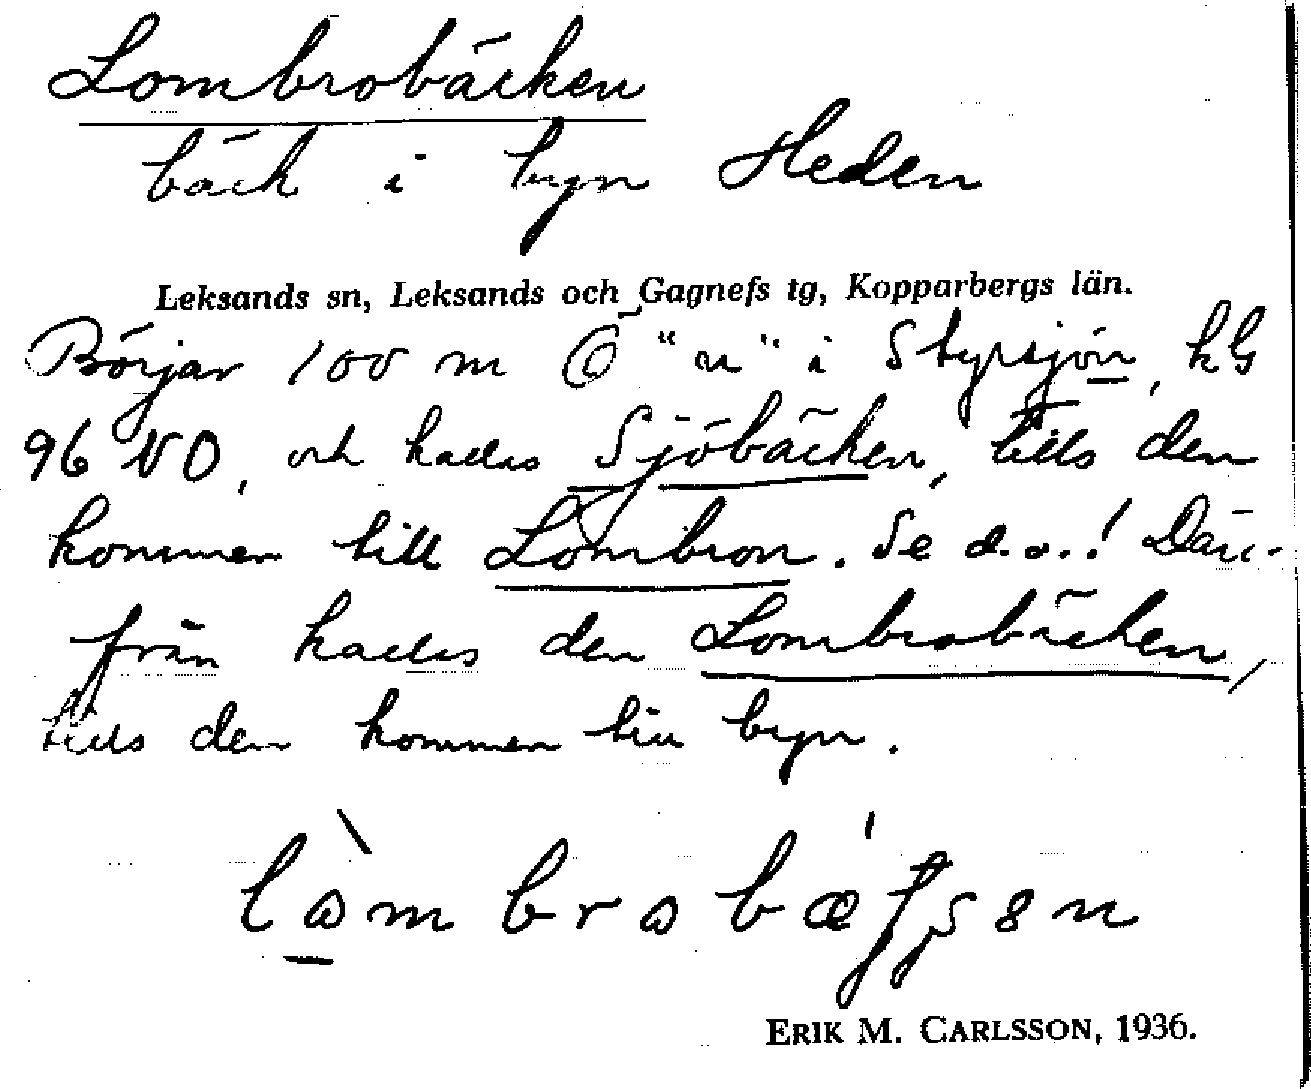 Lombrobäcken
bäck i byn Heden
Leksands sn, Leksands och Gagnefs tg, Kopparbergs län.
Börjar 100 m Ö "n" i Styrsjön, kG
96 NO, och kallas Sjöbäcken, tills den
kommer till Lombron. Se d.o.! Däri-
från kallas den Lombrobäcken,
tills den kommer till byn.
ERIK M. CARLSSON, 1936.